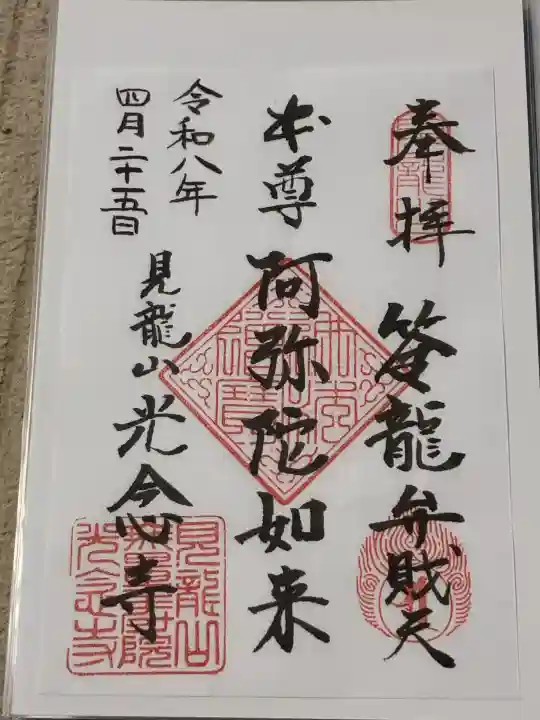 奉拝 登龍弁財天
本尊 阿弥陀如来
令和八年
四月二十五日
見龍山 光念寺
見龍山
無量寿院
光念寺